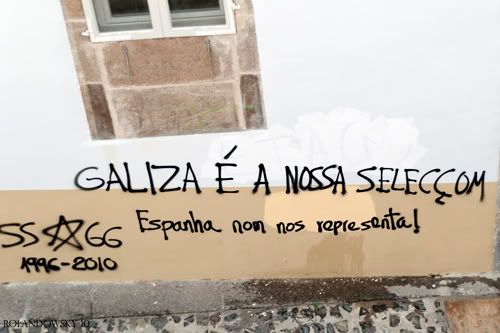 GALIZA É A NOSSA SELECÇOM
Espanha nom nos representa!
SS GG
1996-2010
ROLANDOWSKY'10